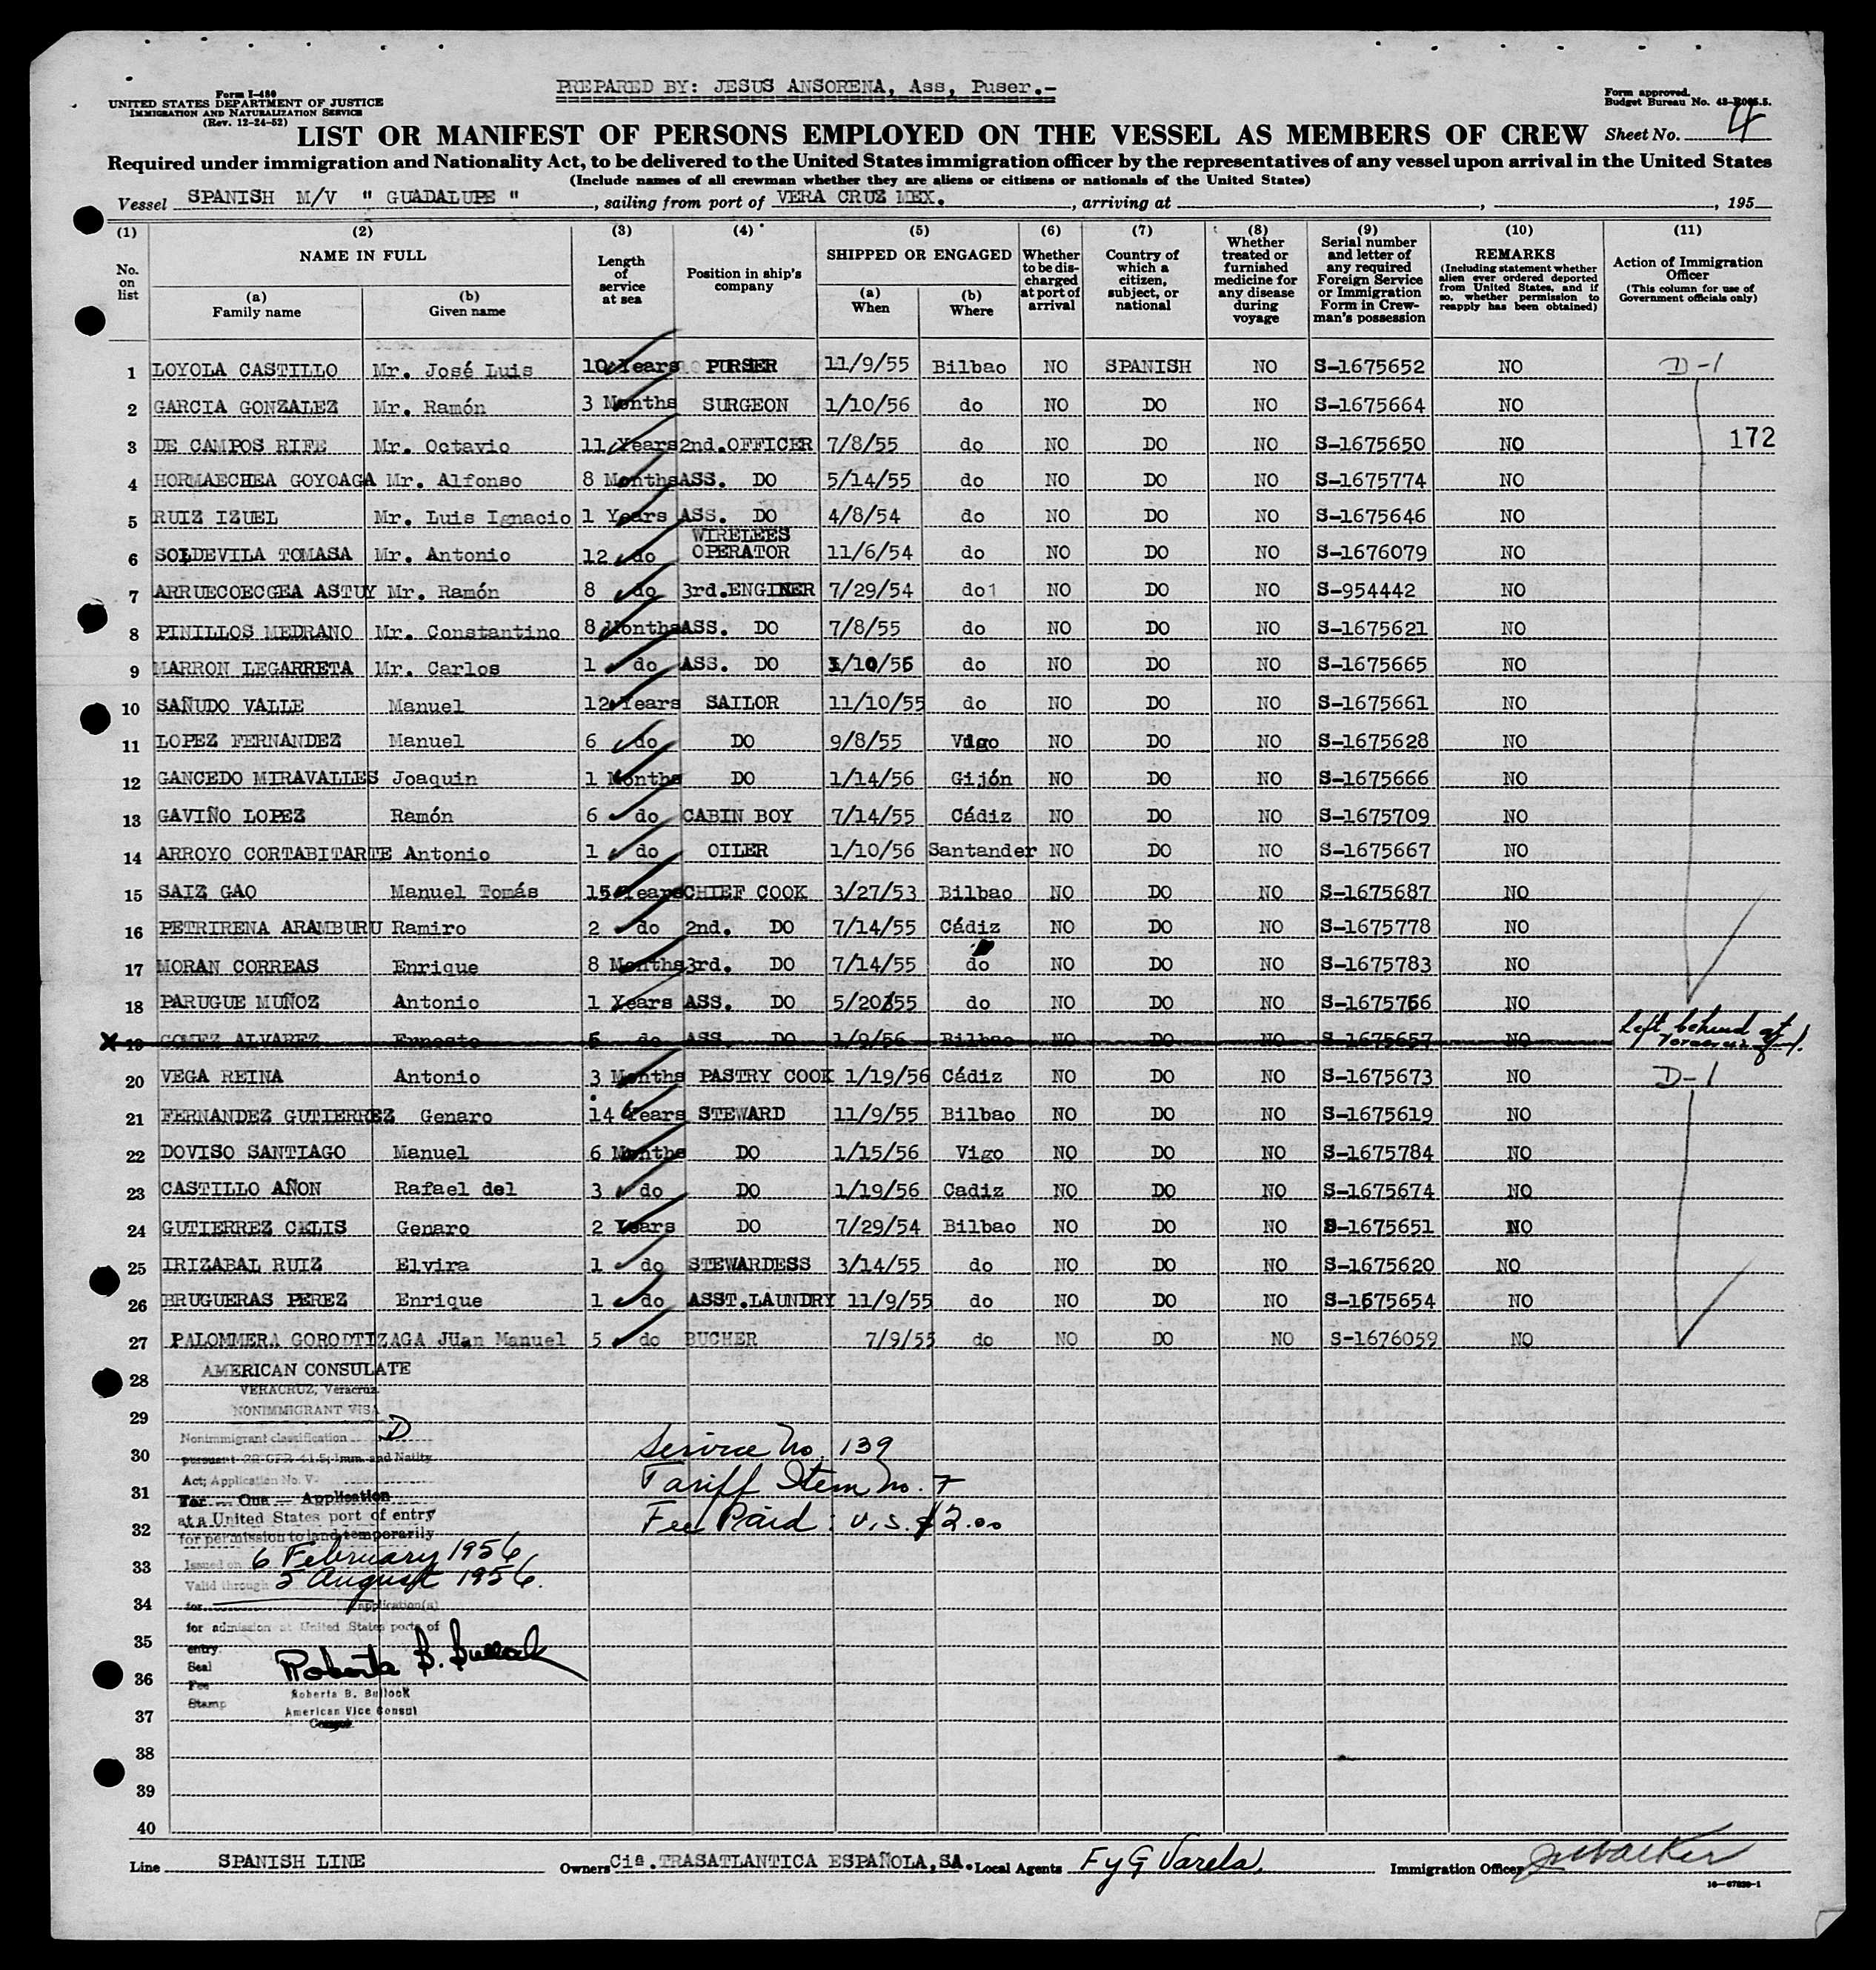 PREPARED BY: JESUS ANSORENA, Ass, Puser.-
Form I-480
UNITED STATES DEPARTMENT OF JUSTICE
IMMIGRATION AND NATURALIZATION SERVICE
(Rev. 12-24-52)
Form approved.
Budget Bureau No. 43-R065.5.
LIST OR MANIFEST OF PERSONS EMPLOYED ON THE VESSEL AS MEMBERS OF CREW Sheet No. 4
Required under immigration and Nationality Act, to be delivered to the United States immigration officer by the representatives of any vessel upon arrival in the United States
(Include names of all crewman whether they are aliens or citizens or nationals of the United States)
Vessel SPANISH M/V " GUADALUPE " , sailing from port of VERA CRUZ MEX. , arriving at , , 195
(1) No. on list (2) NAME IN FULL (a) Family name (b) Given name (3) Length of service at sea (4) Position in ship's company (5) SHIPPED OR ENGAGED (a) When (b) Where (6) Whether to be discharged at port of arrival (7) Country of which a citizen, subject, or national (8) Whether treated or furnished medicine for any disease during voyage (9) Serial number and letter of any required Foreign Service or Immigration Form in Crewman's possession (10) REMARKS (Including statement whether alien ever ordered deported from United States, and if so, whether permission to reapply has been obtained) (11) Action of Immigration Officer (This column for use of Government officials only)
1 LOYOLA CASTILLO Mr. José Luis 10 Years PURSER 11/9/55 Bilbao NO SPANISH NO S-1675652 NO D-1
2 GARCIA GONZALEZ Mr. Ramón 3 Months SURGEON 1/10/56 do NO DO NO S-1675664 NO
3 DE CAMPOS RIFE Mr. Octavio 11 Years 2nd.OFFICER 7/8/55 do NO DO NO S-1675650 NO 172
4 HORMAECHEA GOYOAGA Mr. Alfonso 8 Months ASS. DO 5/14/55 do NO DO NO S-1675774 NO
5 RUIZ IZUEL Mr. Luis Ignacio 1 Years ASS. DO 4/8/54 do NO DO NO S-1675646 NO
6 SOLDEVILA TOMASA Mr. Antonio 12 do WIRELEES OPERATOR 11/6/54 do NO DO NO S-1676079 NO
7 ARRUECOECGEA ASTUY Mr. Ramón 8 do 3rd.ENGINER 7/29/54 do1 NO DO NO S-954442 NO
8 PINILLOS MEDRANO Mr. Constantino 8 Months ASS. DO 7/8/55 do NO DO NO S-1675621 NO
9 MARRON LEGARRETA Mr. Carlos 1 do ASS. DO 1/10/56 do NO DO NO S-1675665 NO
10 SAÑUDO VALLE Manuel 12 Years SAILOR 11/10/55 do NO DO NO S-1675661 NO
11 LOPEZ FERNANDEZ Manuel 6 do DO 9/8/55 Vigo NO DO NO S-1675628 NO
12 GANCEDO MIRAVALLES Joaquin 1 Months DO 1/14/56 Gijón NO DO NO S-1675666 NO
13 GAVIÑO LOPEZ Ramón 6 do CABIN BOY 7/14/55 Cádiz NO DO NO S-1675709 NO
14 ARROYO CORTABITARTE Antonio 1 do OILER 1/10/56 Santander NO DO NO S-1675667 NO
15 SAIZ GAO Manuel Tomás 15 Years CHIEF COOK 3/27/53 Bilbao NO DO NO S-1675687 NO
16 PETRIRENA ARAMBURU Ramiro 2 do 2nd. DO 7/14/55 Cádiz NO DO NO S-1675778 NO
17 MORAN CORREAS Enrique 8 Months 3rd. DO 7/14/55 do NO DO NO S-1675783 NO
18 PARUGUE MUÑOZ Antonio 1 Years ASS. DO 5/20/55 do NO DO NO S-1675766 NO
X 19 GOMEZ ALVAREZ Ernesto 6 do ASS. DO 1/9/56 Bilbao NO DO NO S-1675657 NO Left behind at Veracruz
20 VEGA REINA Antonio 3 Months PASTRY COOK 1/19/56 Cádiz NO DO NO S-1675673 NO D-1
21 FERNANDEZ GUTIERREZ Genaro 14 Years STEWARD 11/9/55 Bilbao NO DO NO S-1675619 NO
22 DOVISO SANTIAGO Manuel 6 Months DO 1/15/56 Vigo NO DO NO S-1675784 NO
23 CASTILLO AÑON Rafael del 3 do DO 1/19/56 Cadiz NO DO NO S-1675674 NO
24 GUTIERREZ CELIS Genaro 2 Years DO 7/29/54 Bilbao NO DO NO S-1675651 NO
25 IRIZABAL RUIZ Elvira 1 do STEWARDESS 3/14/55 do NO DO NO S-1675620 NO
26 BRUGUERAS PEREZ Enrique 1 do ASST.LAUNDRY 11/9/55 do NO DO NO S-1675654 NO
27 PALOMMERA GORODTIZAGA JUan Manuel 5 do BUCHER 7/9/55 do NO DO NO S-1676059 NO
28 AMERICAN CONSULATE
VERACRUZ, Veracruz
29 NONIMMIGRANT VISA
Nonimmigrant classification D
30 pursuant 22 CFR 41.5; Imm. and Natlty Service No. 139
Act; Application No. V-
31 For - One - Application Tariff Item No. 7
at a United States port of entry
32 for permission to land temporarily Fee Paid: U.S. $2.00
33 Issued on 6 February 1956
Valid through 5 August 1956.
34 for application(s)
for admission at United States ports of
35 entry.
Seal Roberta B. Bullock
36 Fee Roberta B. Bullock
Stamp American Vice Consul
37 Consul
38
39
40
Line SPANISH LINE Owners Ciª. TRASATLANTICA ESPAÑOLA, SA. Local Agents F y G Varela Immigration Officer JWalker
16-67820-1